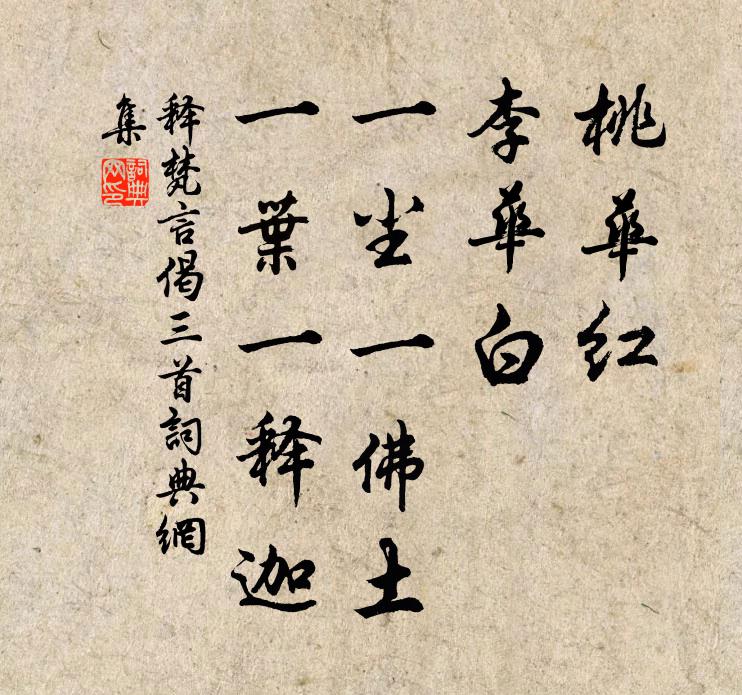 桃華红
李華白
一尘一佛土
一葉一释迦
释梵言偈三首詞典網
集
詞典網印